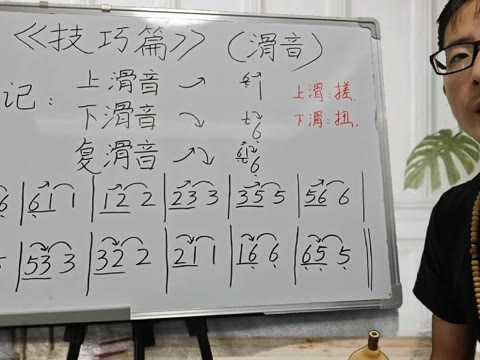 《技巧篇》（滑音）
记：上滑音
下滑音
复滑音
上滑：搓
下滑：扭
6|61 1|12 2|23 3|35 5|56 6|
5|53 3|32 2|21 1|16 6|65 5‖